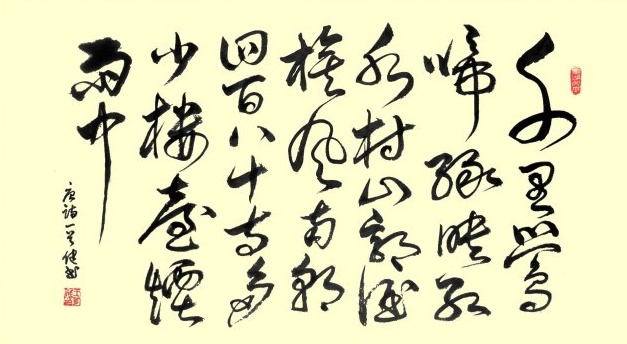 千里鶯
啼綠映紅
水村山郭酒
旗風南朝
四百八十寺多
少樓臺煙
雨中
唐詩一首健書